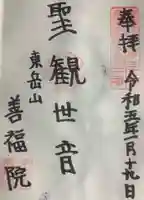 奉拝
令和五年一月十九日
聖観世音
東岳山
善福院